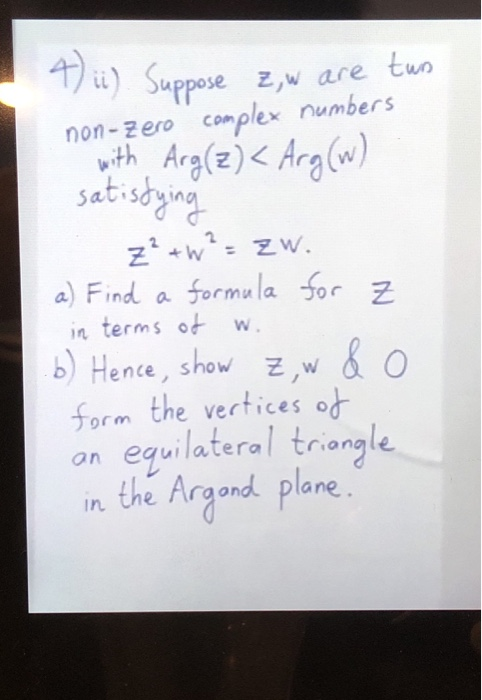 4) ii) Suppose z,w are two
non-zero complex numbers
with Arg(z) < Arg(w)
satisfying
z² + w² = zw.
a) Find a formula for z
in terms of w.
b) Hence, show z,w & 0
form the vertices of
an equilateral triangle
in the Argand plane.